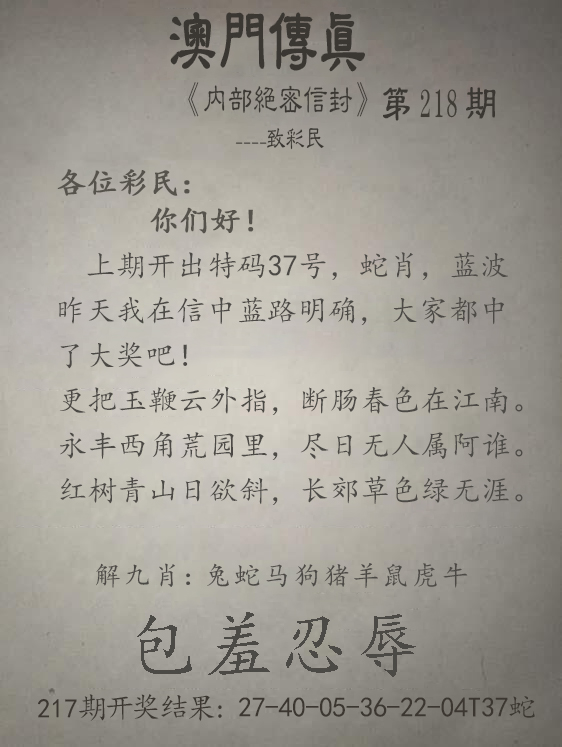 澳門傳眞
《内部絕密信封》第218期
----致彩民
各位彩民：
你们好！
上期开出特码37号，蛇肖，蓝波
昨天我在信中蓝路明确，大家都中
了大奖吧！
更把玉鞭云外指，断肠春色在江南。
永丰西角荒园里，尽日无人属阿谁。
红树青山日欲斜，长郊草色绿无涯。
解九肖：兔蛇马狗猪羊鼠虎牛
包羞忍辱
217期开奖结果：27-40-05-36-22-04T37蛇